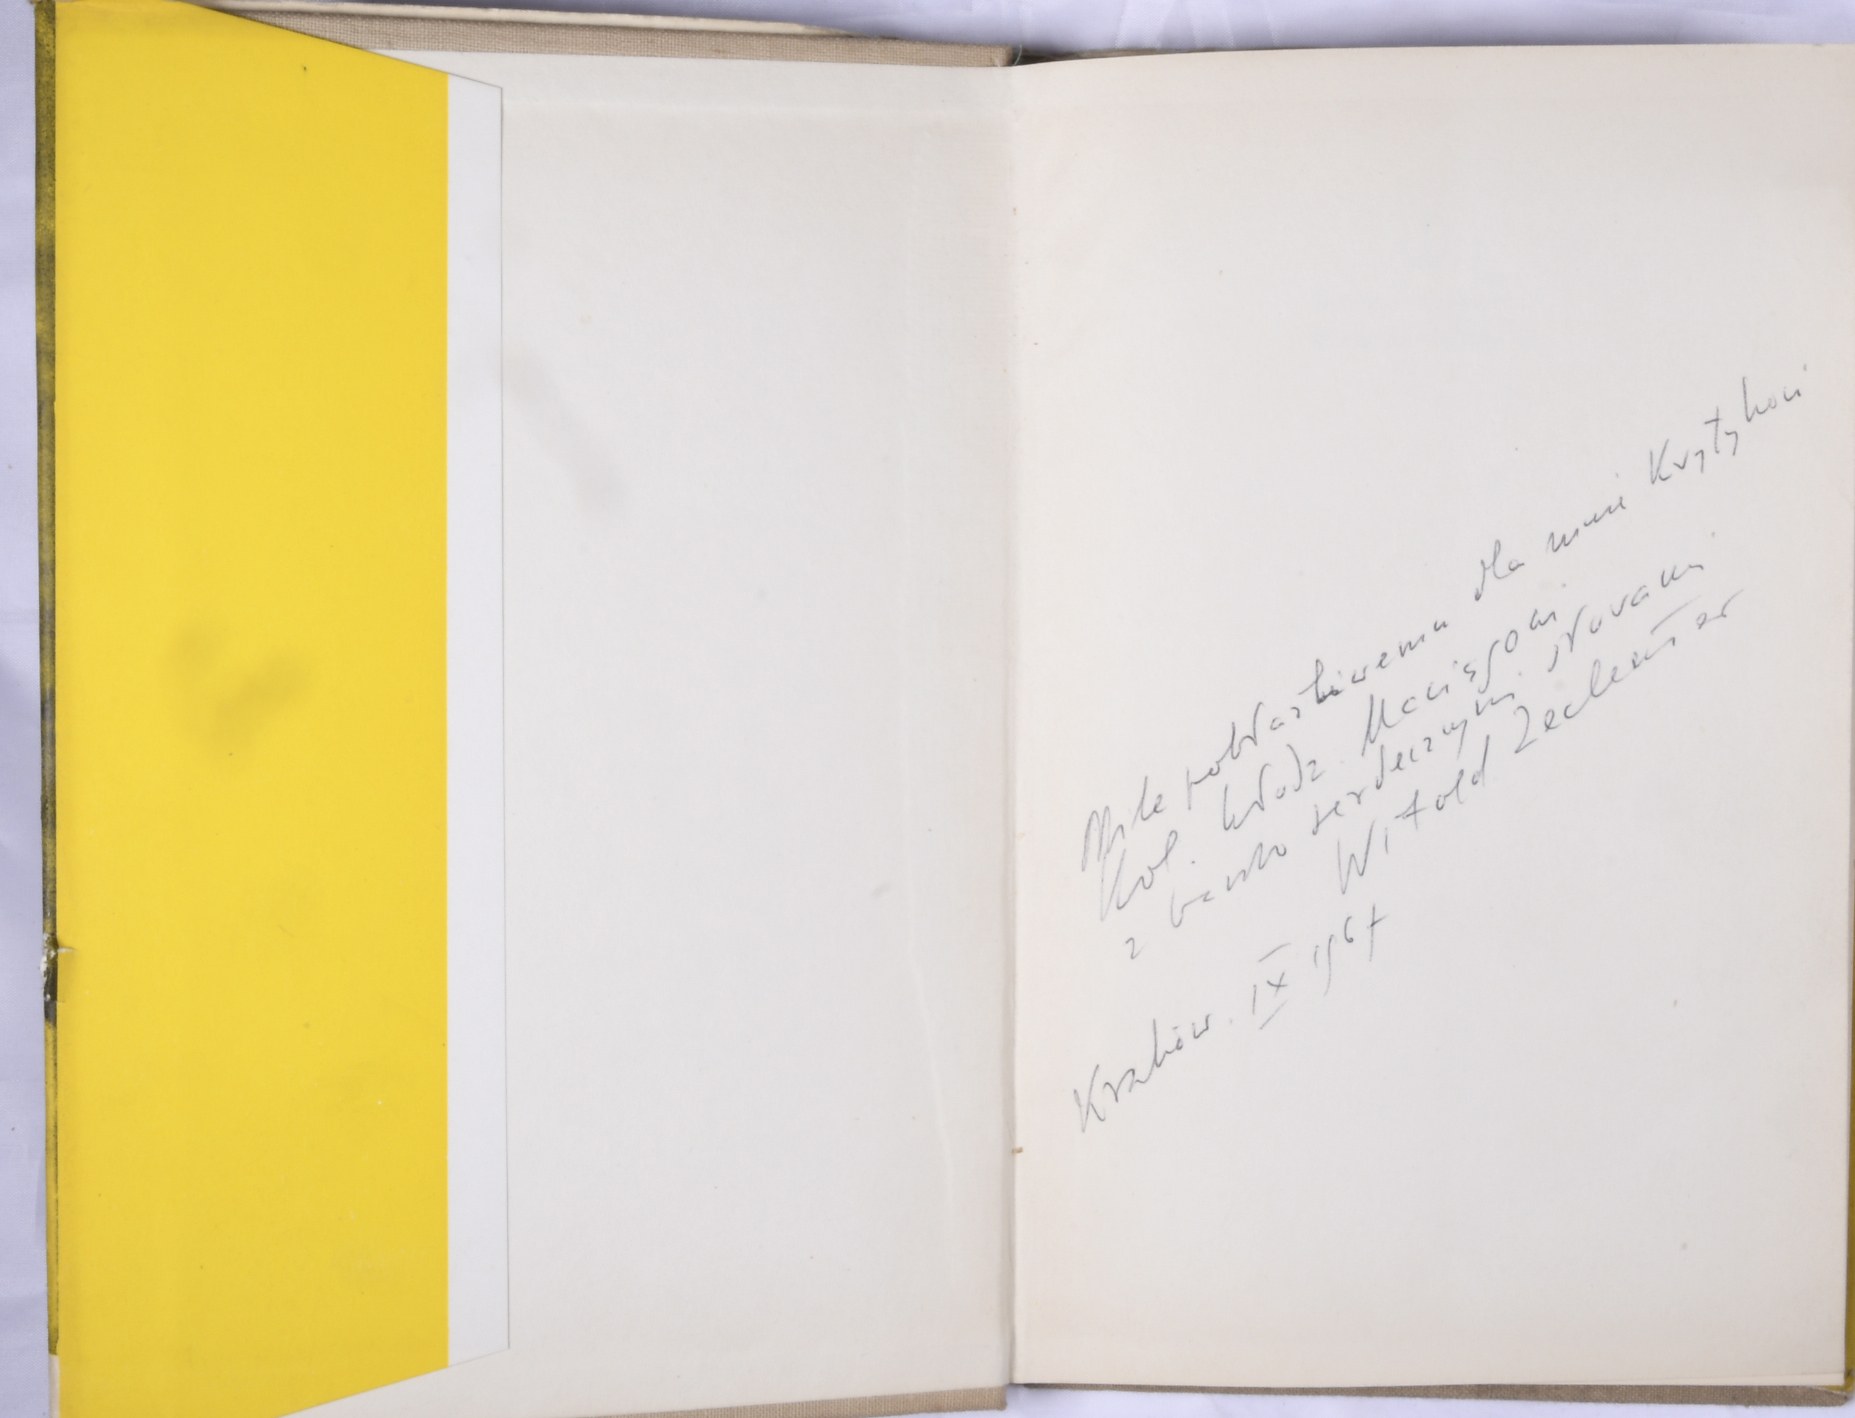 Mile pobłażliwemu dla mnie Krytykowi
Kol. Włodz. Maciągowi
z bardzo serdecznymi słowami
Witold Zechenter
Kraków. IX 1967